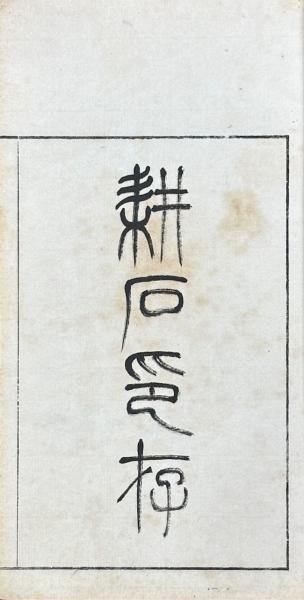 耕石印存